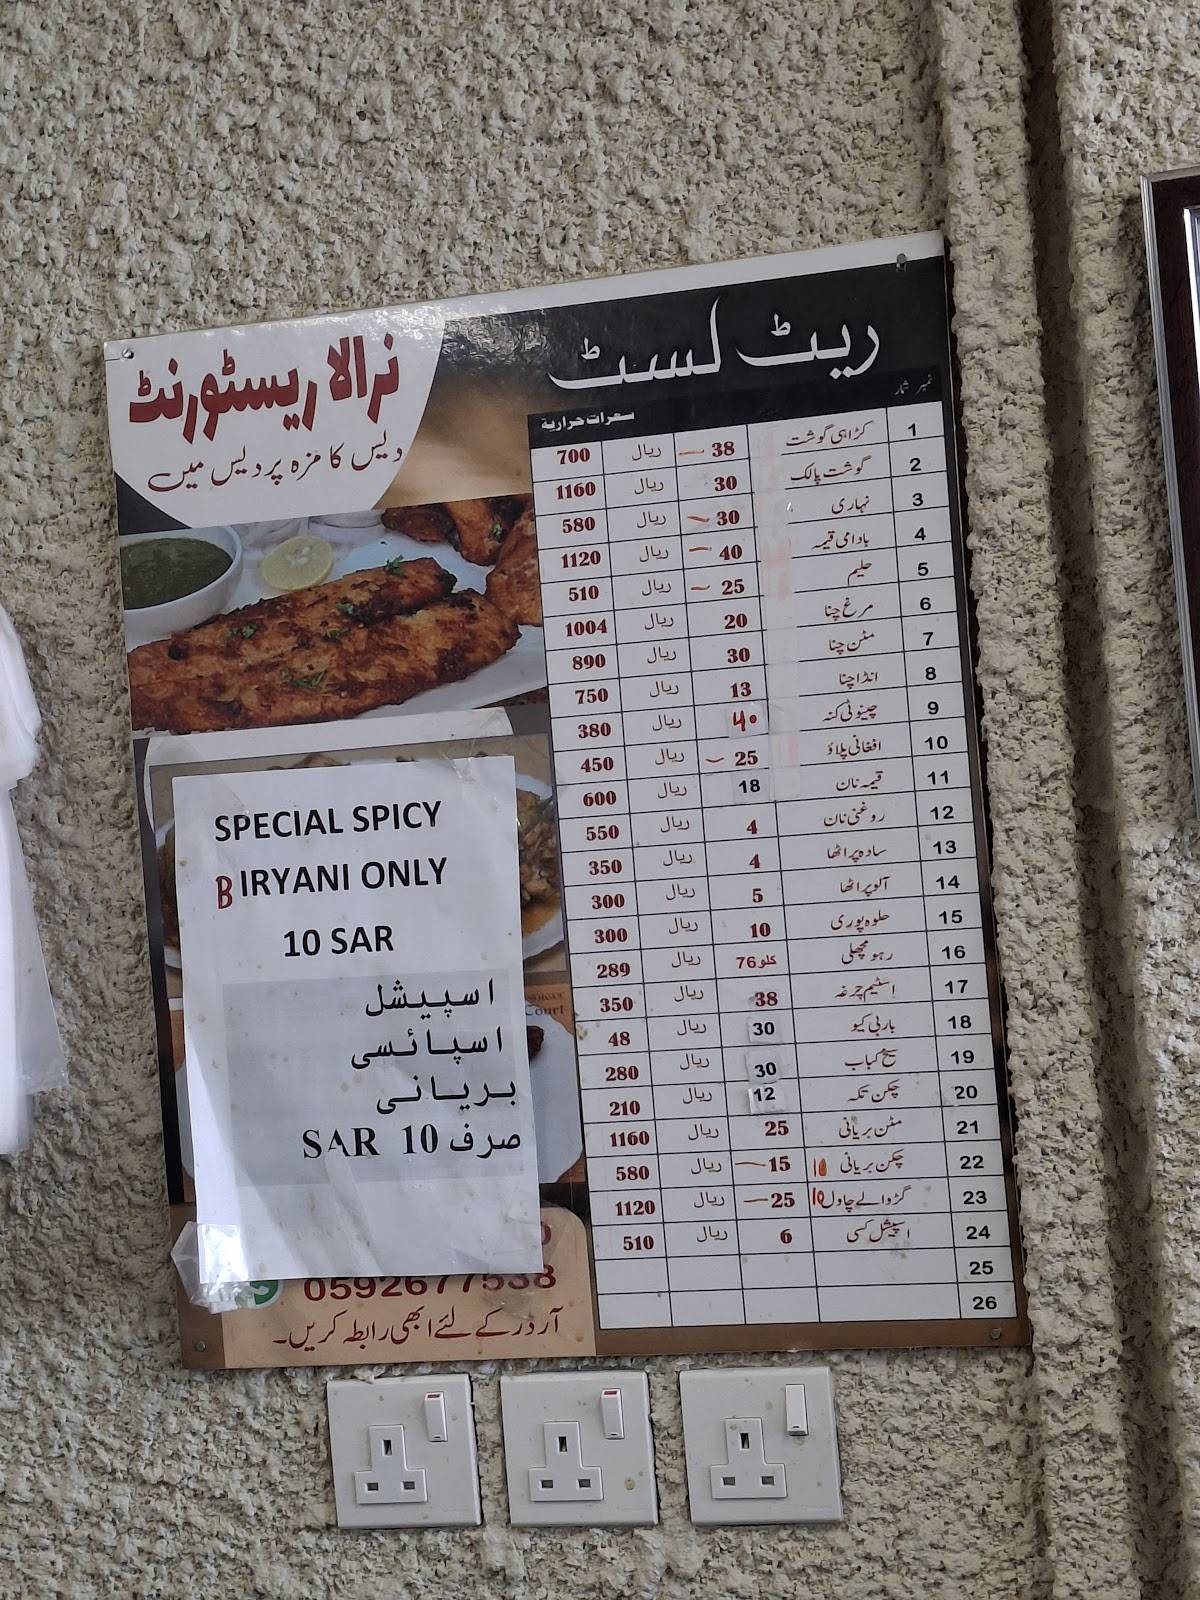 نرالا ریسٹورنٹ
دیس کا مزہ پردیس میں
ریٹ لسٹ
نمبر شمار
سعرات حرارية
1 کڑاہی گوشت 38 ریال 700
2 گوشت پالک 30 ریال 1160
3 نہاری 30 ریال 580
4 بادامی قیمہ 40 ریال 1120
5 حلیم 25 ریال 510
6 مرغ چنا 20 ریال 1004
7 مٹن چنا 30 ریال 890
8 انڈا چنا 13 ریال 750
9 چینوٹی کنہ 40 ریال 380
10 افغانی پلاؤ 25 ریال 450
11 قیمہ نان 18 ریال 600
12 روغنی نان 4 ریال 550
13 سادہ پراٹھا 4 ریال 350
14 آلو پراٹھا 5 ریال 300
15 حلوہ پوری 10 ریال 300
16 رہو مچھلی 76 کلو ریال 289
17 اسٹیم چرغہ 38 ریال 350
18 باربی کیو 30 ریال 48
19 سیخ کباب 30 ریال 280
20 چکن تکہ 12 ریال 210
21 مٹن بریانی 25 ریال 1160
22 چکن بریانی 10 15 ریال 580
23 گڑ والے چاول 10 25 ریال 1120
24 اسپیشل لسی 6 ریال 510
25
26
SPECIAL SPICY
BIRYANI ONLY
10 SAR
اسپیشل
اسپائسی
بریانی
صرف 10 SAR
Court
0592677538
آرڈر کے لئے ابھی رابطہ کریں۔